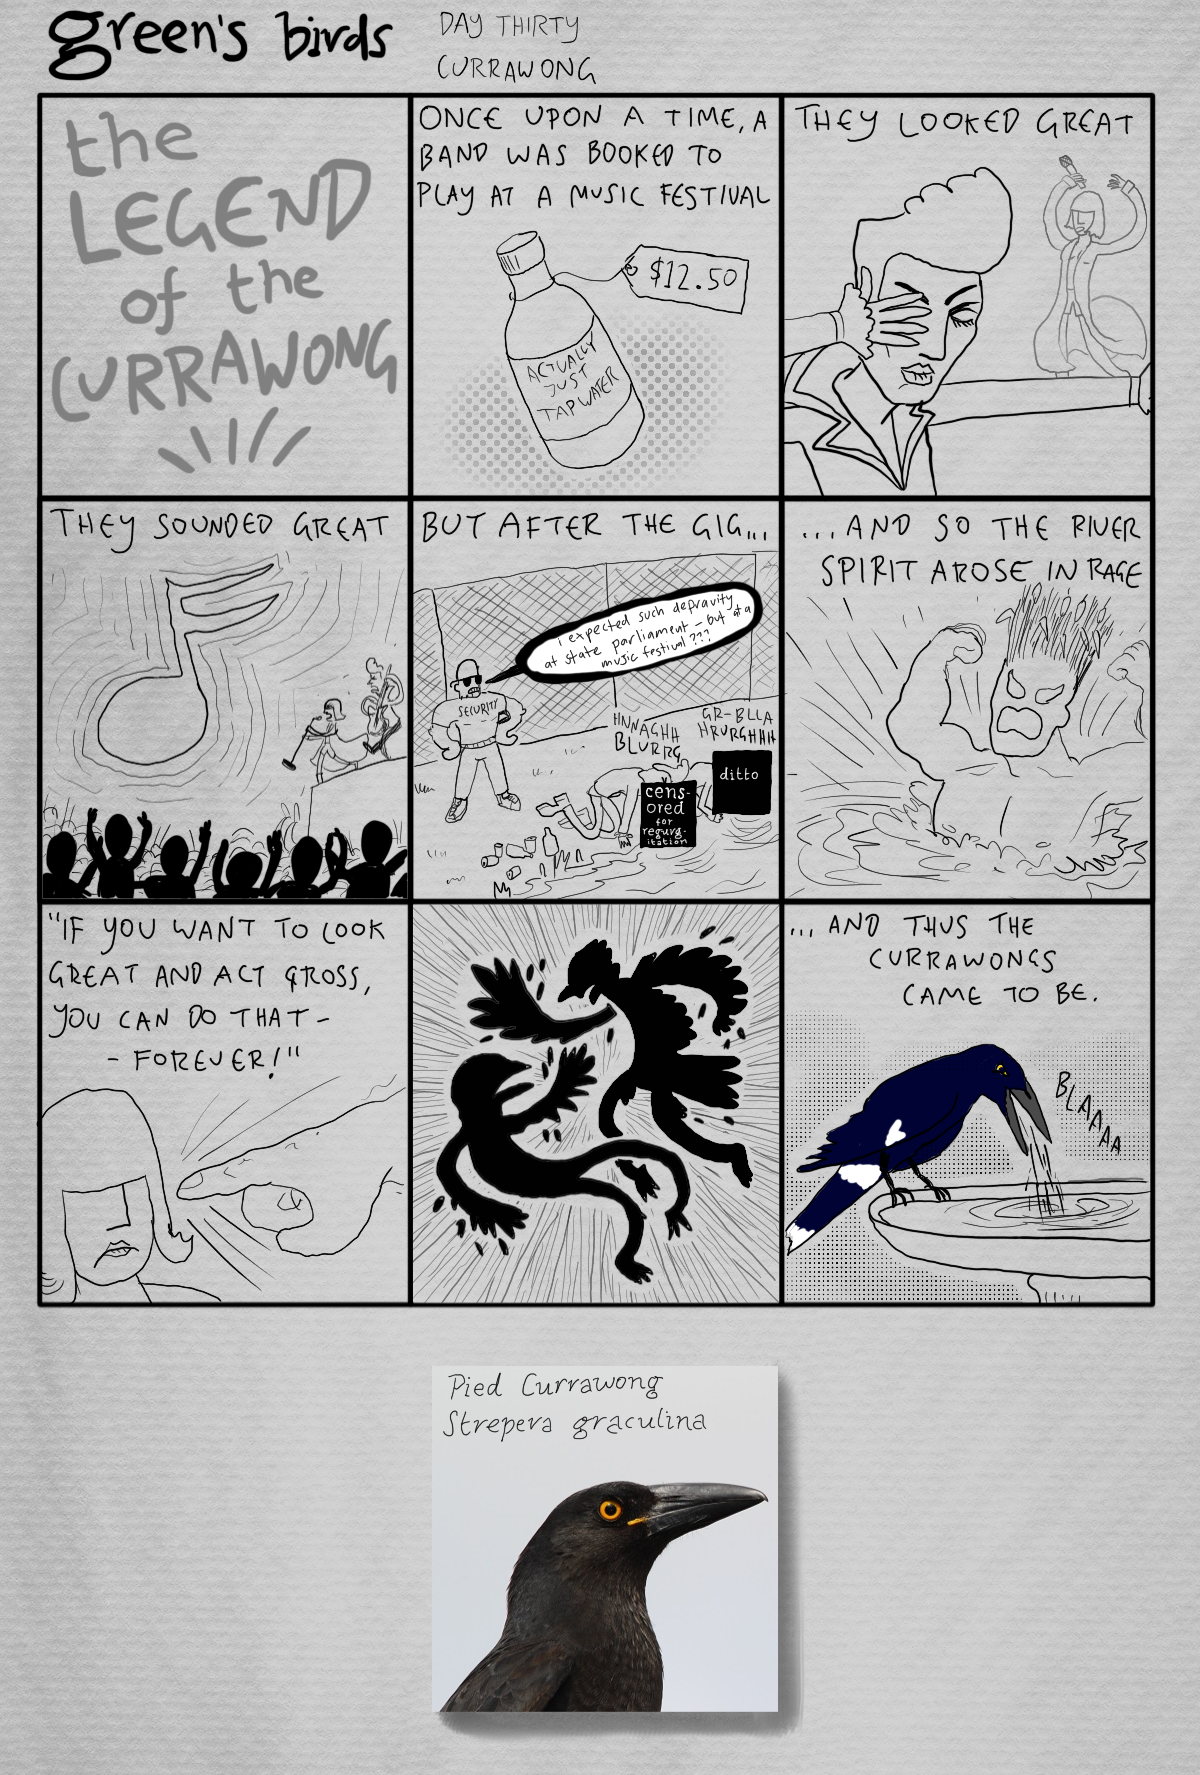 green's birds
DAY THIRTY
CURRAWONG
the
LEGEND
of the
CURRAWONG
ONCE UPON A TIME, A
BAND WAS BOOKED TO
PLAY AT A MUSIC FESTIVAL
$12.50
ACTUALLY
JUST
TAP WATER
THEY LOOKED GREAT
THEY SOUNDED GREAT
BUT AFTER THE GIG...
i expected such depravity
at state parliament - but at a
music festival ???
SECURITY
HNNAGHH
BLURRG
GR-BLLA
HRURGHHH
cens-
ored
for
regurg-
itation
ditto
...AND SO THE RIVER
SPIRIT AROSE IN RAGE
"IF YOU WANT TO LOOK
GREAT AND ACT GROSS,
YOU CAN DO THAT -
- FOREVER!"
... AND THUS THE
CURRAWONGS
CAME TO BE.
BLAAAAA
Pied Currawong
Strepera graculina